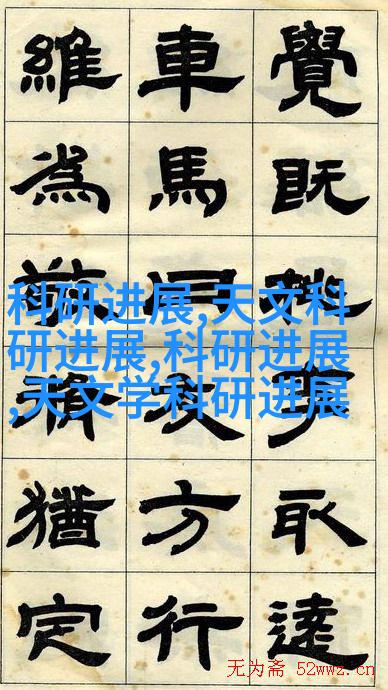 覺既事取達
車馬同方行
維為猶定
科研进展,天文科
研进展,科研进展
,天文学科研进展
无为斋 52wwz.cn